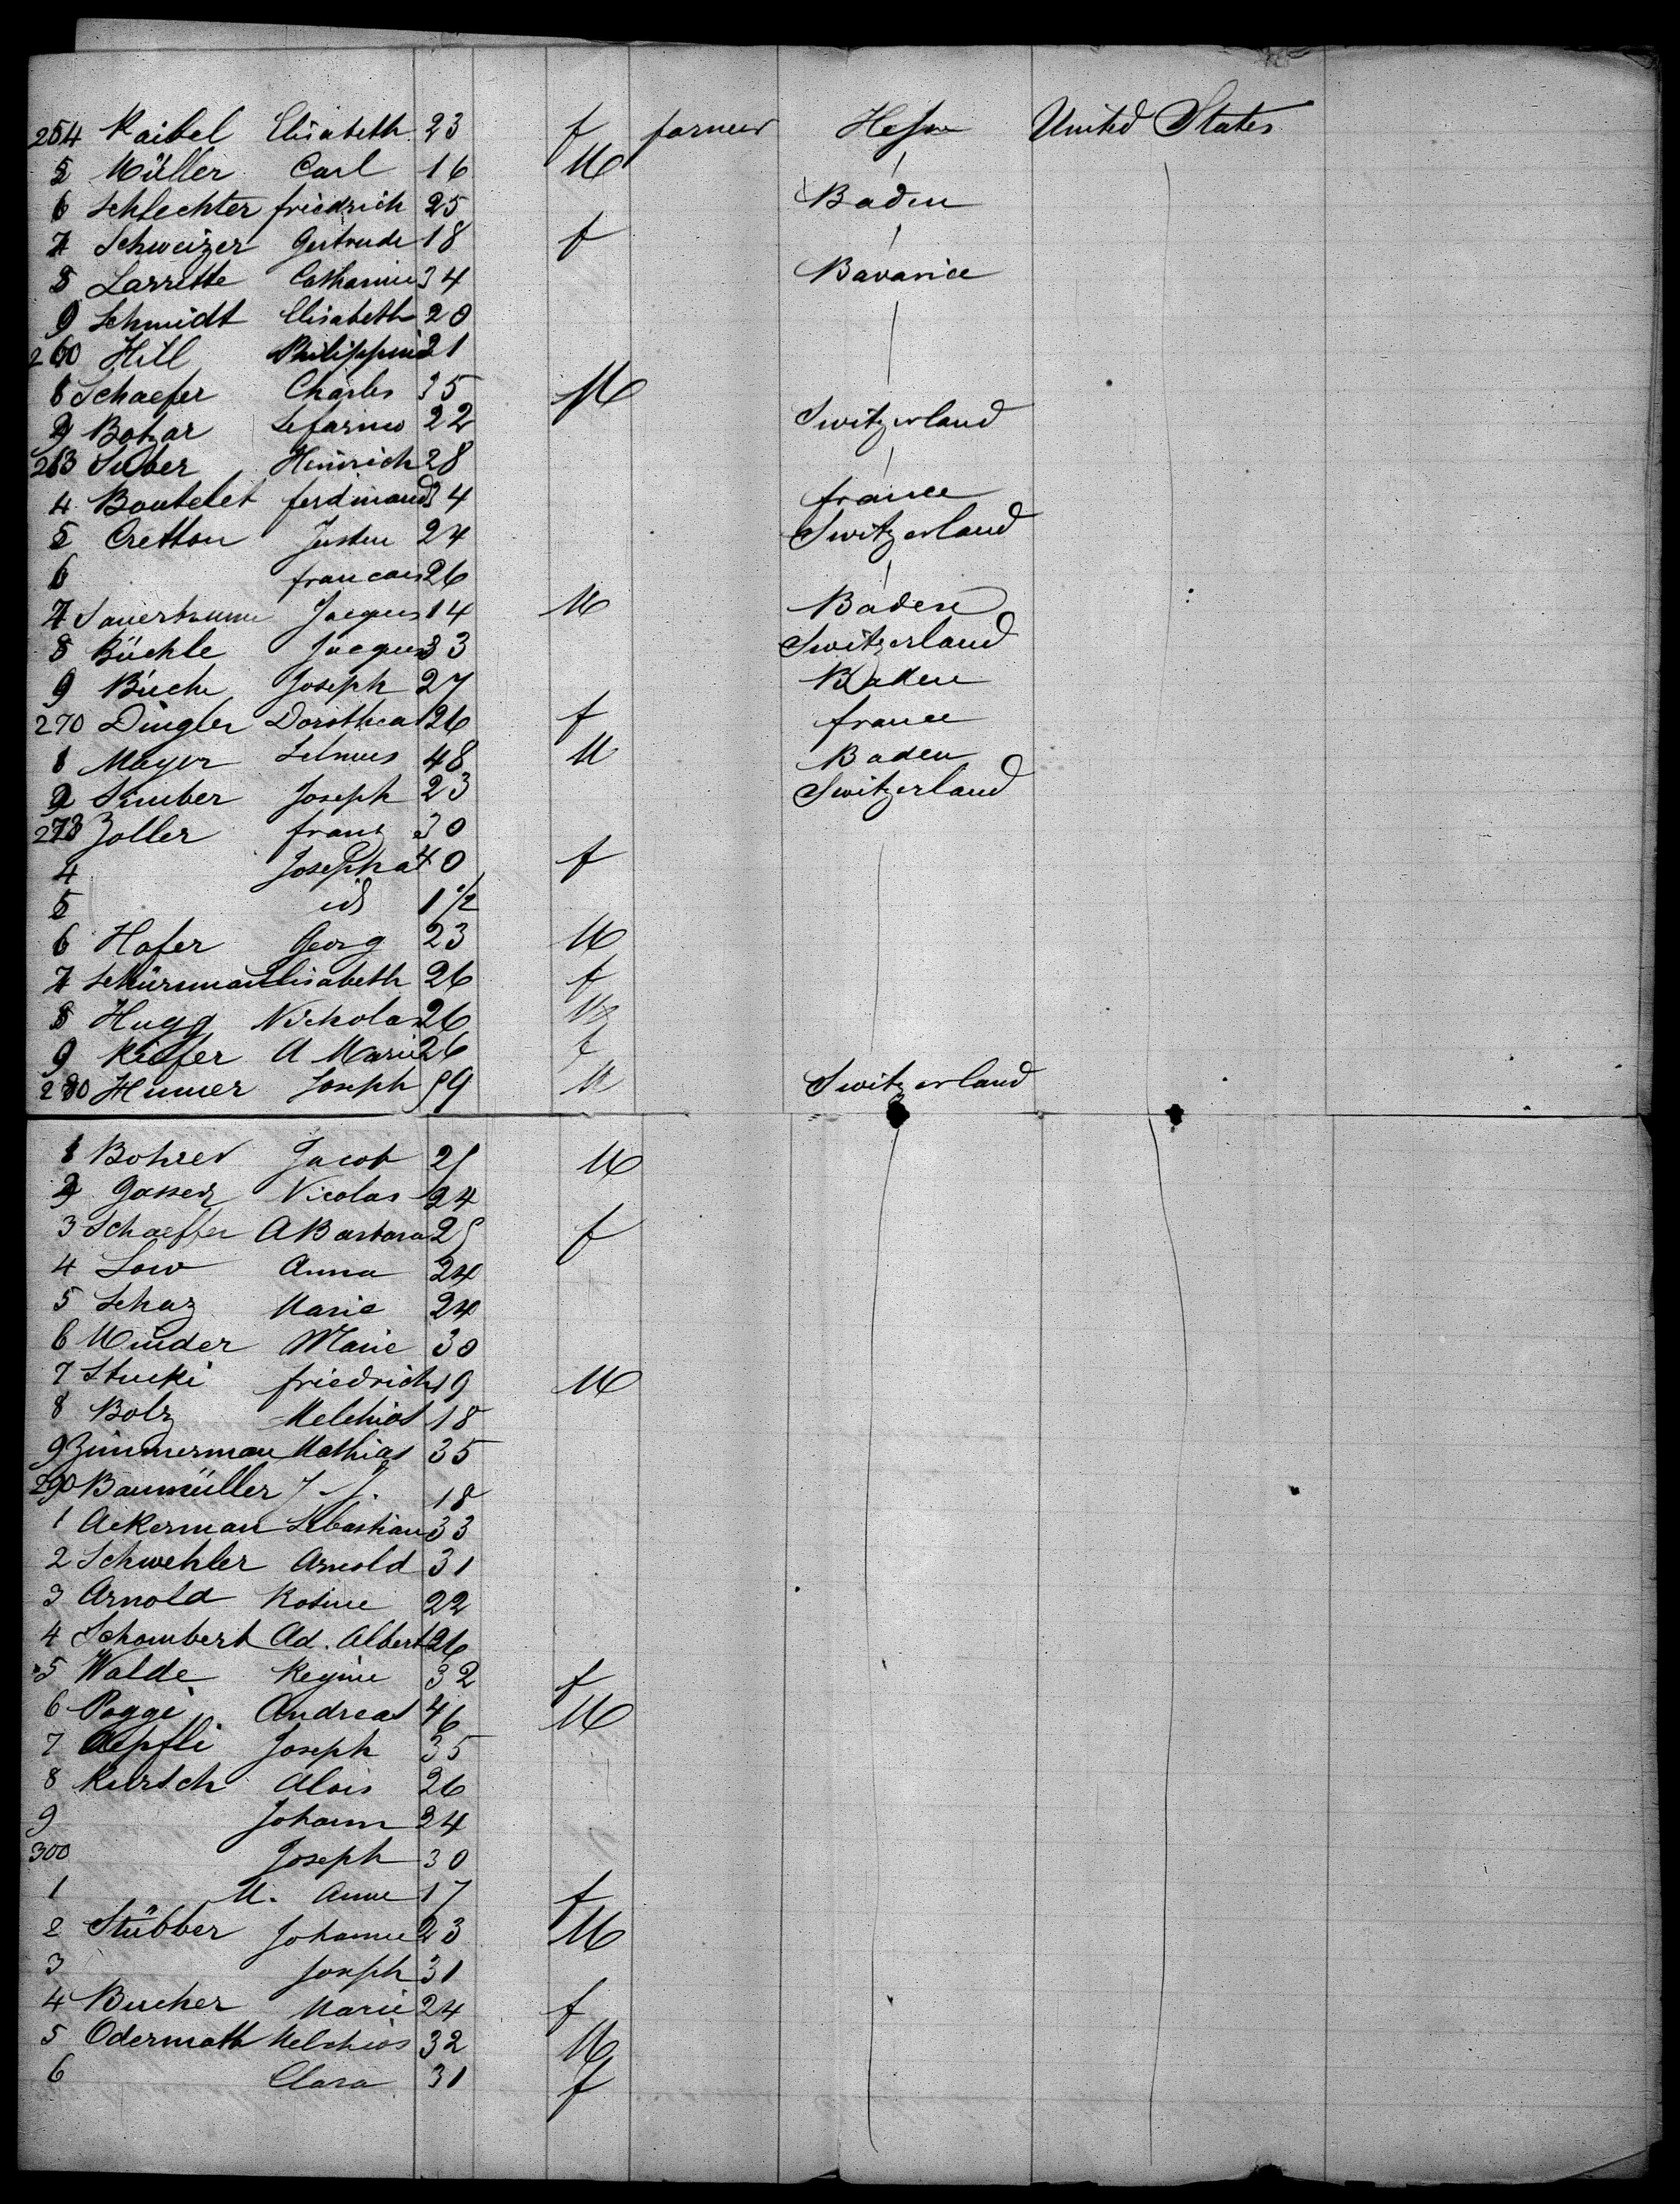 254 Kaibel Elisabeth 23 f farmer Hessen United States
5 Müller Carl 16 M
6 Schlechter friedrich 25 Baden
7 Schweizer Gertrude 18 f
8 Larrette Catharine 34 Bavaria
9 Schmidt Elisabeth 20
260 Hill Philippine 21
1 Schaefer Charles 35 M
2 Botzar 22 Switzerland
263 Suber Heinrich 28
4 Boutelet ferdinand 34 france
5 Cretton Justin 24 Switzerland
6 francois 26
7 Jacques 14 M Baden
8 Büchle Jacques 33 Switzerland
9 Büche Joseph 27 Baden
270 Dingler Dorothea 26 f france
1 Meyer 48 M Baden
2 Joseph 23 Switzerland
273 Zoller franz 30
4 Josepha 40 f
5 id 1 1/2
6 Hofer Georg 23 M
7 Schürman Elisabeth 26 f
8 Hugg Nicholas 26 M
9 Kiefer A Marie 26 f
280 Joseph 59 M Switzerland
1 Bohrer Jacob 25 M
2 Gasser Nicolas 24
3 Schaeffer A Barbara 25 f
4 Low Anna 24
5 Schaz Marie 24
6 Minder Marie 30
7 Stucki friedrich 19 M
8 Bolz Melchior 18
9 Zimmerman Mathias 35
290 Baumüller J. J. 18
1 Ackerman Sebastian 33
2 Schwehler Arnold 31
3 Arnold Rosine 22
4 Schombert Ad. Albert 26
5 Walde Regine 32 f
6 Poggi Andreas 46 M
7 Aepfli Joseph 35
8 Kursch Alois 26
9 Johann 24
300 Joseph 30
1 M. Anne 17 f
2 Stübber Johanne 23 M
3 Joseph 31
4 Bucher Marie 24 f
5 Odermath Melchior 32 M
6 Clara 31 f